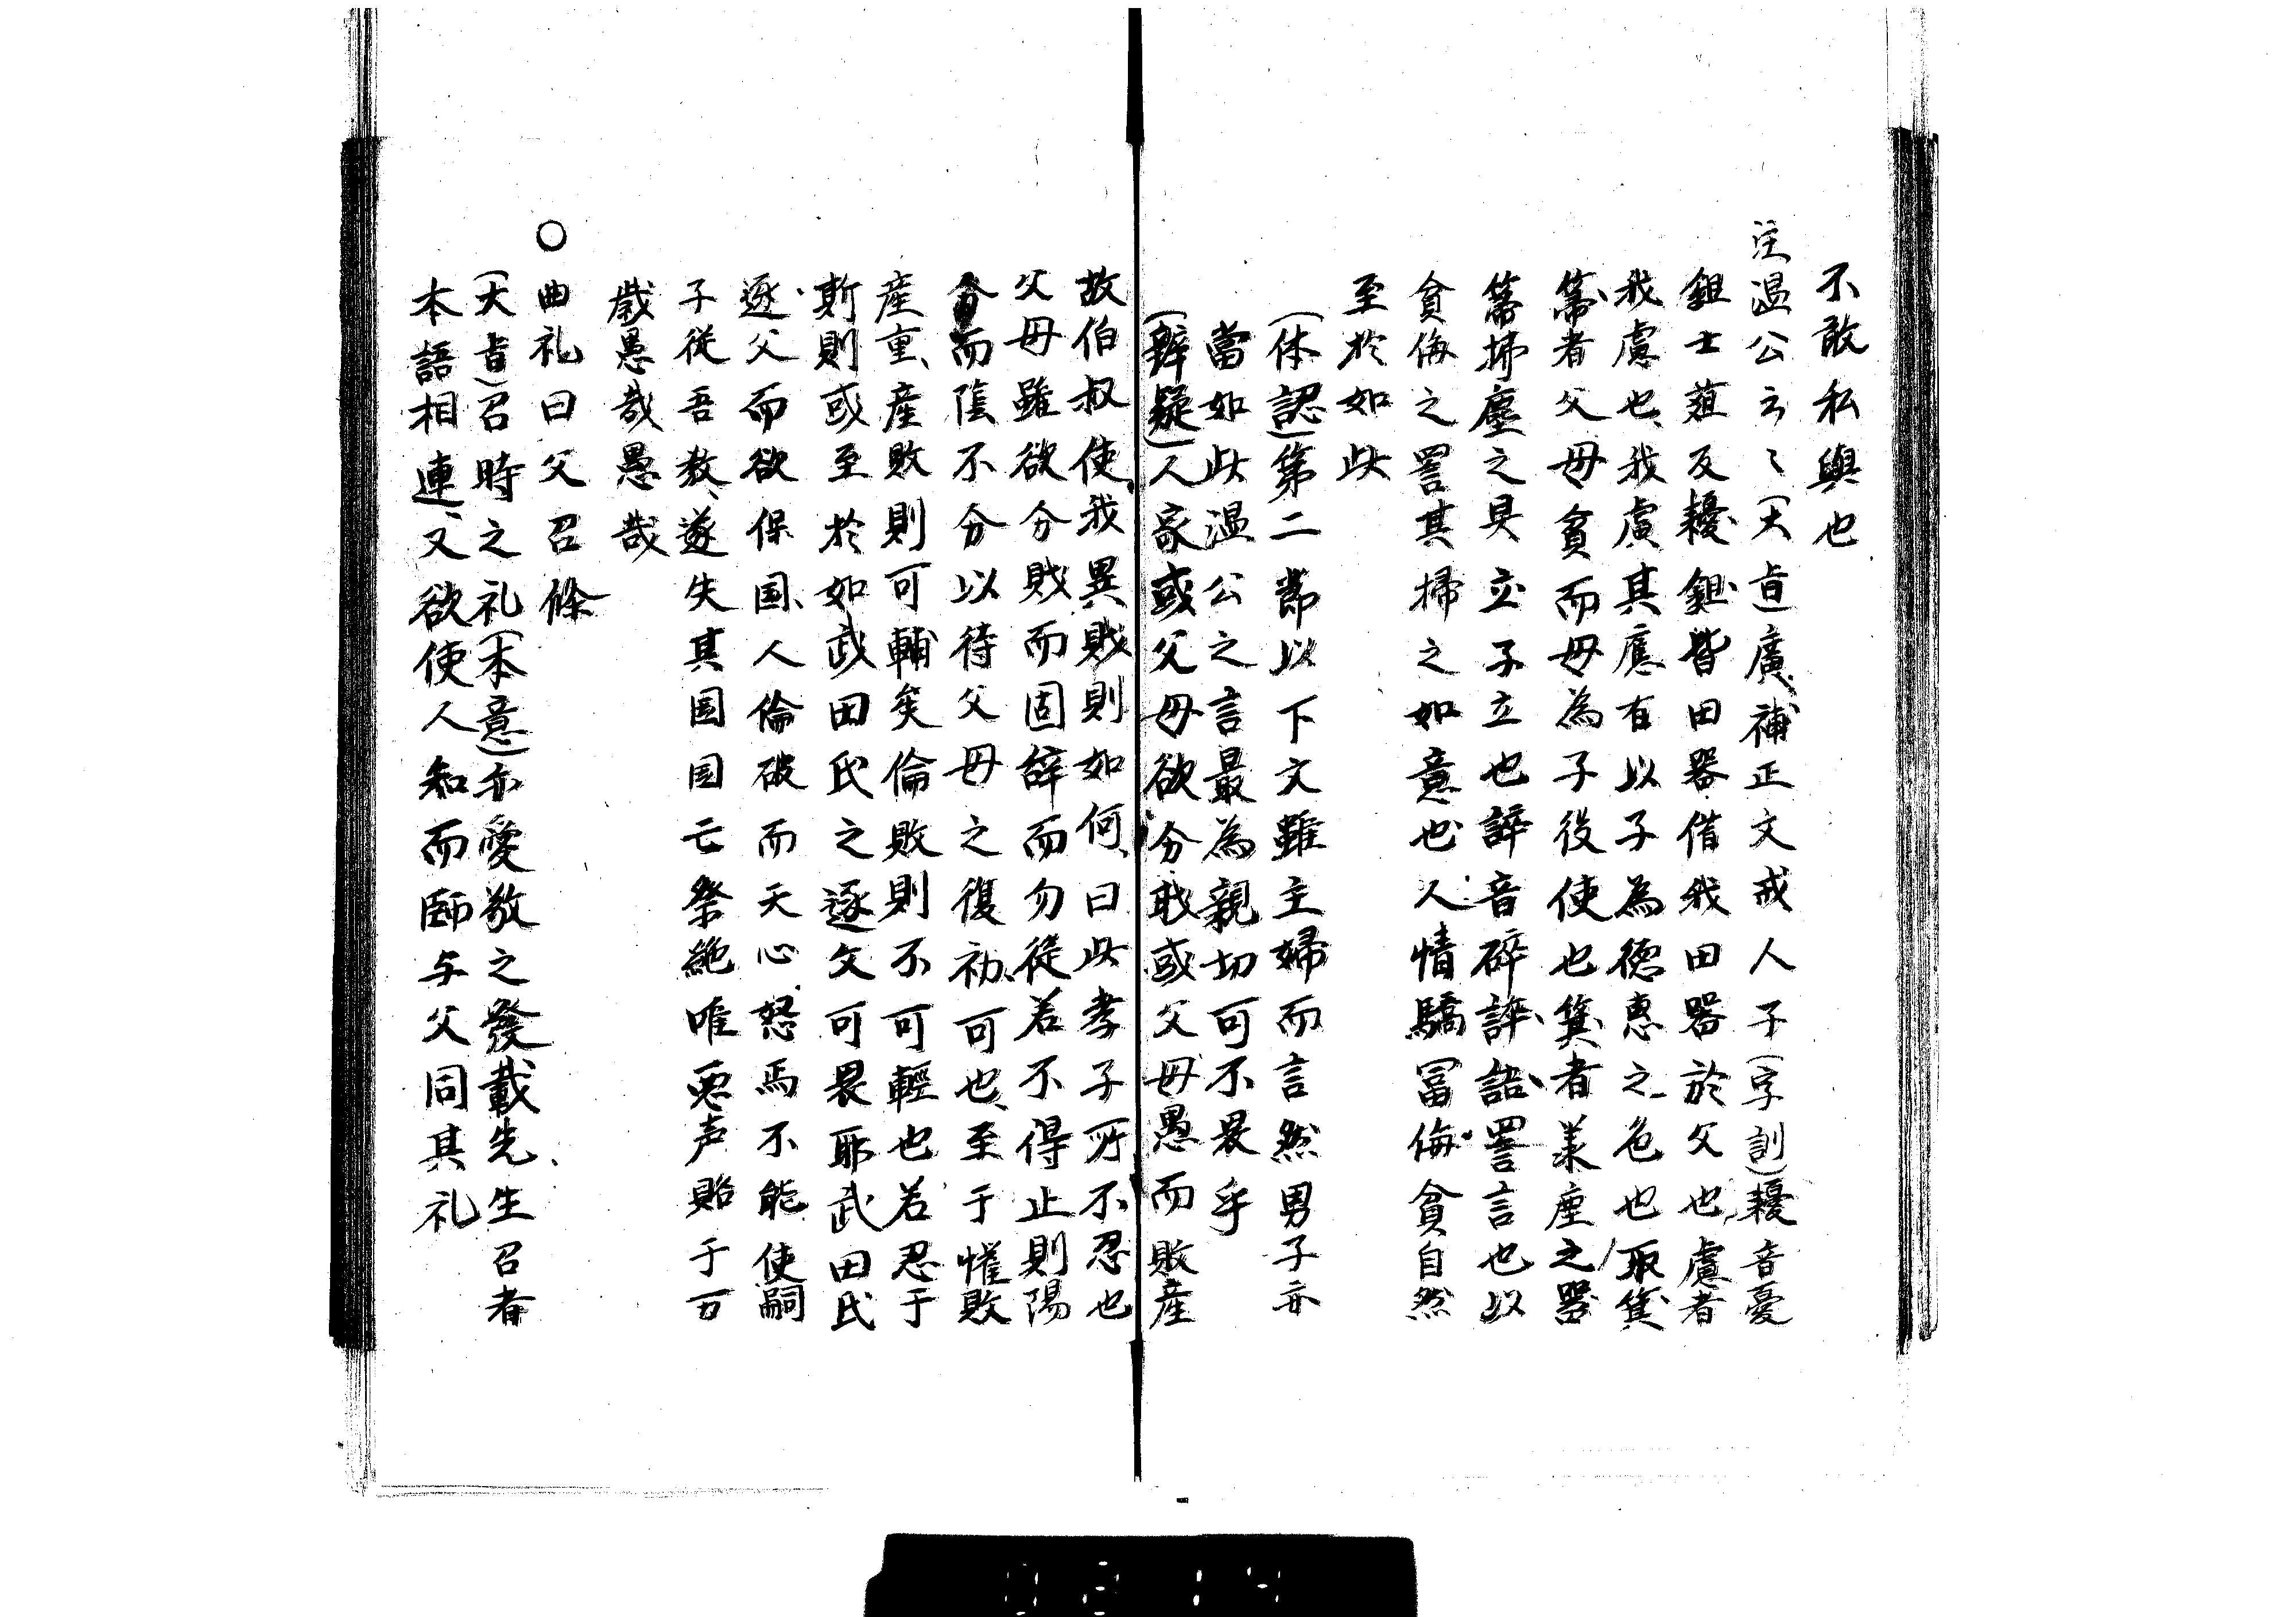 不敢私與也
注温公云〻(大旨)廣補正文戒人子(字訓)耰音憂
鉏士葅反耰鉏皆田器借我田器於父也慮者
我慮也我慮其應有以子為徳恵之色也取箕
箒者父母貧而母為子役使也箕者羕塵之器
箒掃塵之具立子立也誶音碎誶語詈言也以
貧侮之詈其掃之如意也人情驕冨侮貧自然
至於如此
(体認)第二節以下文雖主婦而言然男子亦
當如此温公之言最為親切可不畏乎
(辨疑)人家或父母欲分戝或父母愚而敗産
故伯叔使我異戝則如何曰此孝子所不忍也
父母雖欲分戝而固辞而勿従若不得止則陽
分而陰不分以待父母之復初可也至于惟敗
産重産敗則可輔矣倫敗則不可輕也若忍于
斯則或至於如武田氏之逐父可畏耶武田氏
逐父而欲保国人倫破而天心怒焉不能使嗣
子従吾教遂失其国国亡祭絶唯悪声貽于万
歳愚哉愚哉
○曲礼曰父召條
(大旨)召時之礼(本意)亦愛敬之發載先生召者
本語相連又欲使人知而師与父同其礼